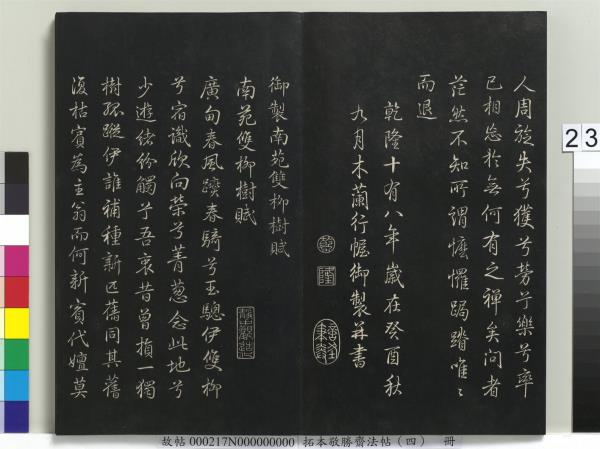 人周旋失兮獲兮勞兮樂兮率
已相忘於無何有之禪矣問者
茫然不知所謂懡㦬跼蹐唯〻
而退
乾隆十有八年歲在癸酉秋
九月木蘭行幄御製并書
乾
隆
御製南苑雙柳樹賦
南苑雙柳樹賦
廣甸春風躋春騎兮玉驄伊雙柳
兮宿識欣向榮兮菁蔥念此地兮
少遊緒紛觸兮吾衷昔曾損一獨
樹孤蹤伊誰補種新匹舊同其舊
復枯賓為主翁而何新賓代嬗莫
23
故帖 000217N000000000 拓本敬勝齋法帖（四） 冊